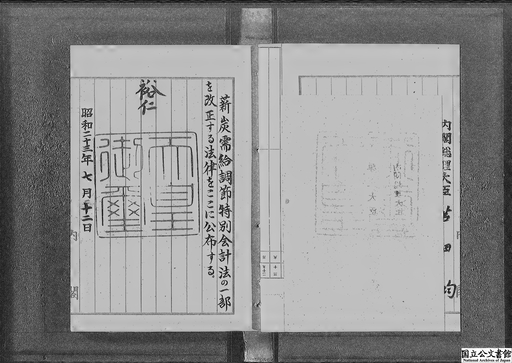 薪炭需給調節特別会計法の一部
を改正する法律をここに公布する。
裕仁
天皇
御璽
昭和二十三年七月十二日
内閣
内閣総理大臣 芦田均
国立公文書館
National Archives of Japan